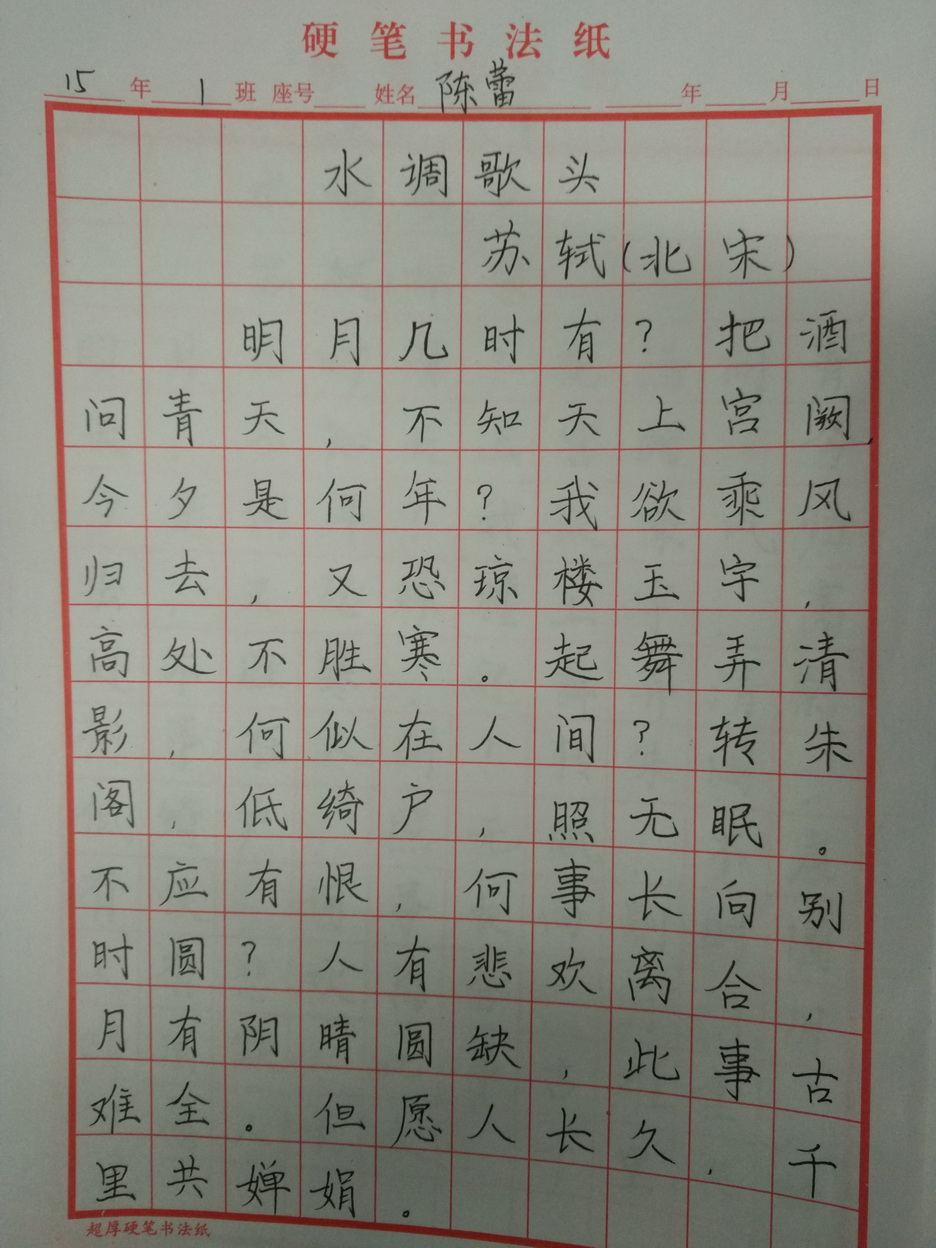 硬笔书法纸
15年 1班 座号 姓名 陈蕾 年 月 日
水调歌头
苏轼(北宋)
明月几时有?把酒
问青天,不知天上宫阙,
今夕是何年?我欲乘风
归去,又恐琼楼玉宇,
高处不胜寒。起舞弄清
影,何似在人间?转朱
阁,低绮户,照无眠。
不应有恨,何事长向别
时圆?人有悲欢离合,
月有阴晴圆缺,此事古
难全。但愿人长久,千
里共婵娟。
超厚硬笔书法纸